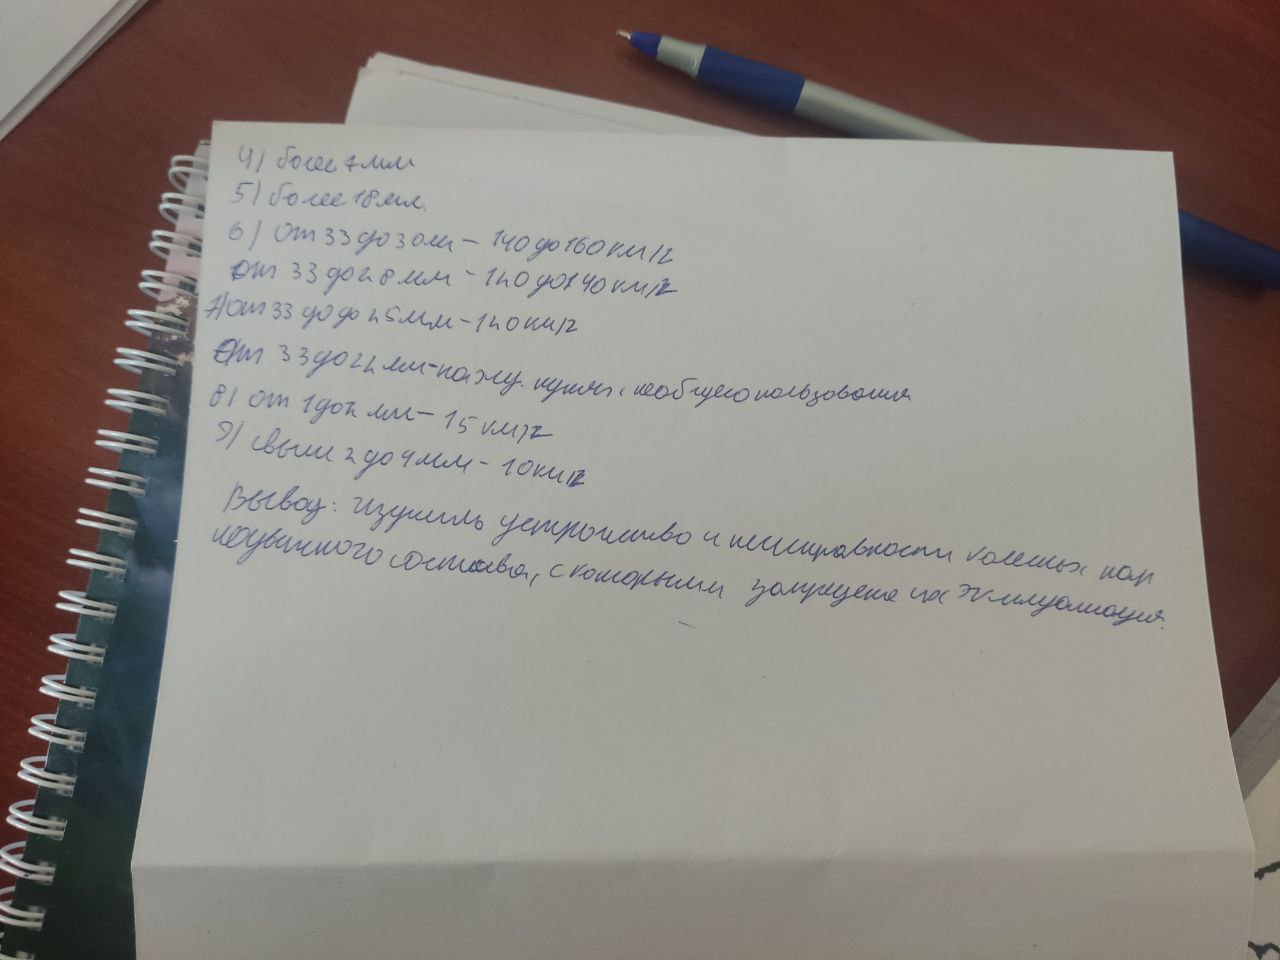 4) более 7 мм
5) более 18 мм.
6) От 33 до 30 мм – 140 до 160 км/ч
От 33 до 28 мм – 120 до 140 км/ч
7) От 33 до до 25 мм – 120 км/ч
От 33 до 22 мм – на жд. путях необщего пользования
8) от 1 до 2 мм – 15 км/ч
9) свыше 2 до 4 мм – 10 км/ч
Вывод: изучить устройство и неисправности колесных пар
подвижного состава, с которыми запрещена их эксплуатация.